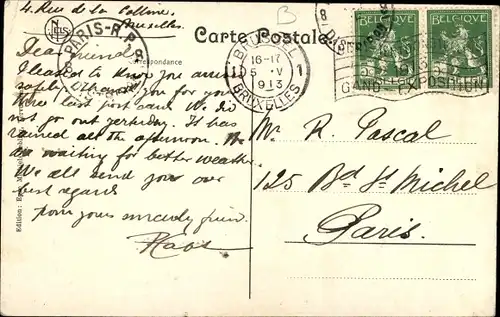 4. Rue de la Colline.
Bruxelles.
Carte Postale
Correspondance
PARIS-R.P.
BRUSSEL
16-17
1 5 V 1
1913
BRUXELLES
BELGIQUE
BELGIQUE
GAND EXPOSITION
Dear friend
I leared to know you arrived
safely. I thank you for your
three last post card. We did
not go out yesterday. It has
rained all the afternoon. We
are waiting for better weather.
We all send you our
best regards
from yours sincerely friend.
Mr. R. Pascal
125 Bd St Michel
Paris.
Edition: